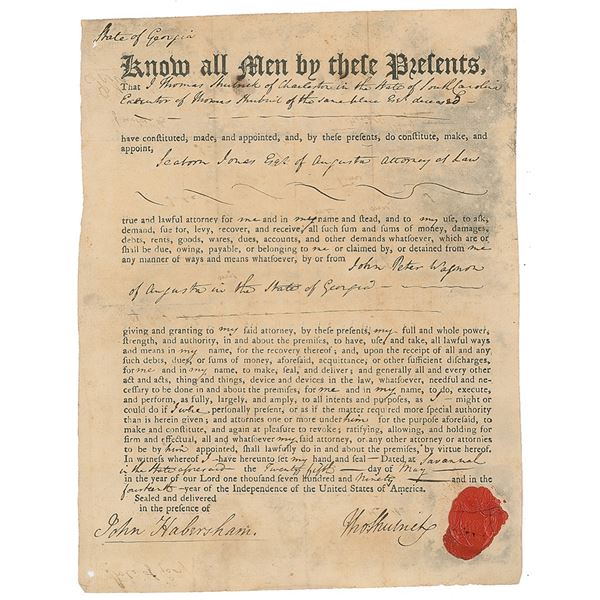 State of Georgia
Know all Men by these Presents,
That I Thomas Shubrick of Charleston in the State of South Carolina
Executor of Thomas Shubrick of the same place Esqr. deceased
have constituted, made, and appointed, and, by these presents, do constitute, make, and
appoint, Seaborn Jones Esqr. of Augusta Attorney at Law
true and lawful attorney for me and in my name and stead, and to my use, to ask,
demand, sue for, levy, recover, and receive, all such sum and sums of money, damages,
debts, rents, goods, wares, dues, accounts, and other demands whatsoever, which are or
shall be due, owing, payable, or belonging to me or claimed by, or detained from me
any manner of ways and means whatsoever, by or from John Peter Wagnon
of Augusta in the State of Georgia
giving and granting to my said attorney, by these presents, my full and whole power,
strength, and authority, in and about the premises, to have, use, and take, all lawful ways
and means in my name, for the recovery thereof; and, upon the receipt of all and any
such debts, dues, or sums of money, aforesaid, acquittance, or other sufficient discharges,
for me and in my name, to make, seal, and deliver; and generally all and every other
act and acts, thing and things, device and devices in the law, whatsoever, needful and ne-
cessary to be done in and about the premises, for me and in my name, to do, execute,
and perform, as fully, largely, and amply, to all intents and purposes, as I might or
could do if I were personally present, or as if the matter required more special authority
than is herein given; and attornies one or more under him for the purpose aforesaid, to
make and constitute, and again at pleasure to revoke; ratifying, allowing, and holding for
firm and effectual, all and whatsoever my said attorney, or any other attorney or attornies
to be by him appointed, shall lawfully do in and about the premises, by virtue hereof.
In witness whereof I have hereunto set my hand and seal Dated at Savannah
in the State aforesaid the Twenty fifth day of May
in the year of our Lord one thousand seven hundred and Ninety and in the
fourteenth year of the Independence of the United States of America.
Sealed and delivered
in the presence of
John Habersham.
Tho Shubrick